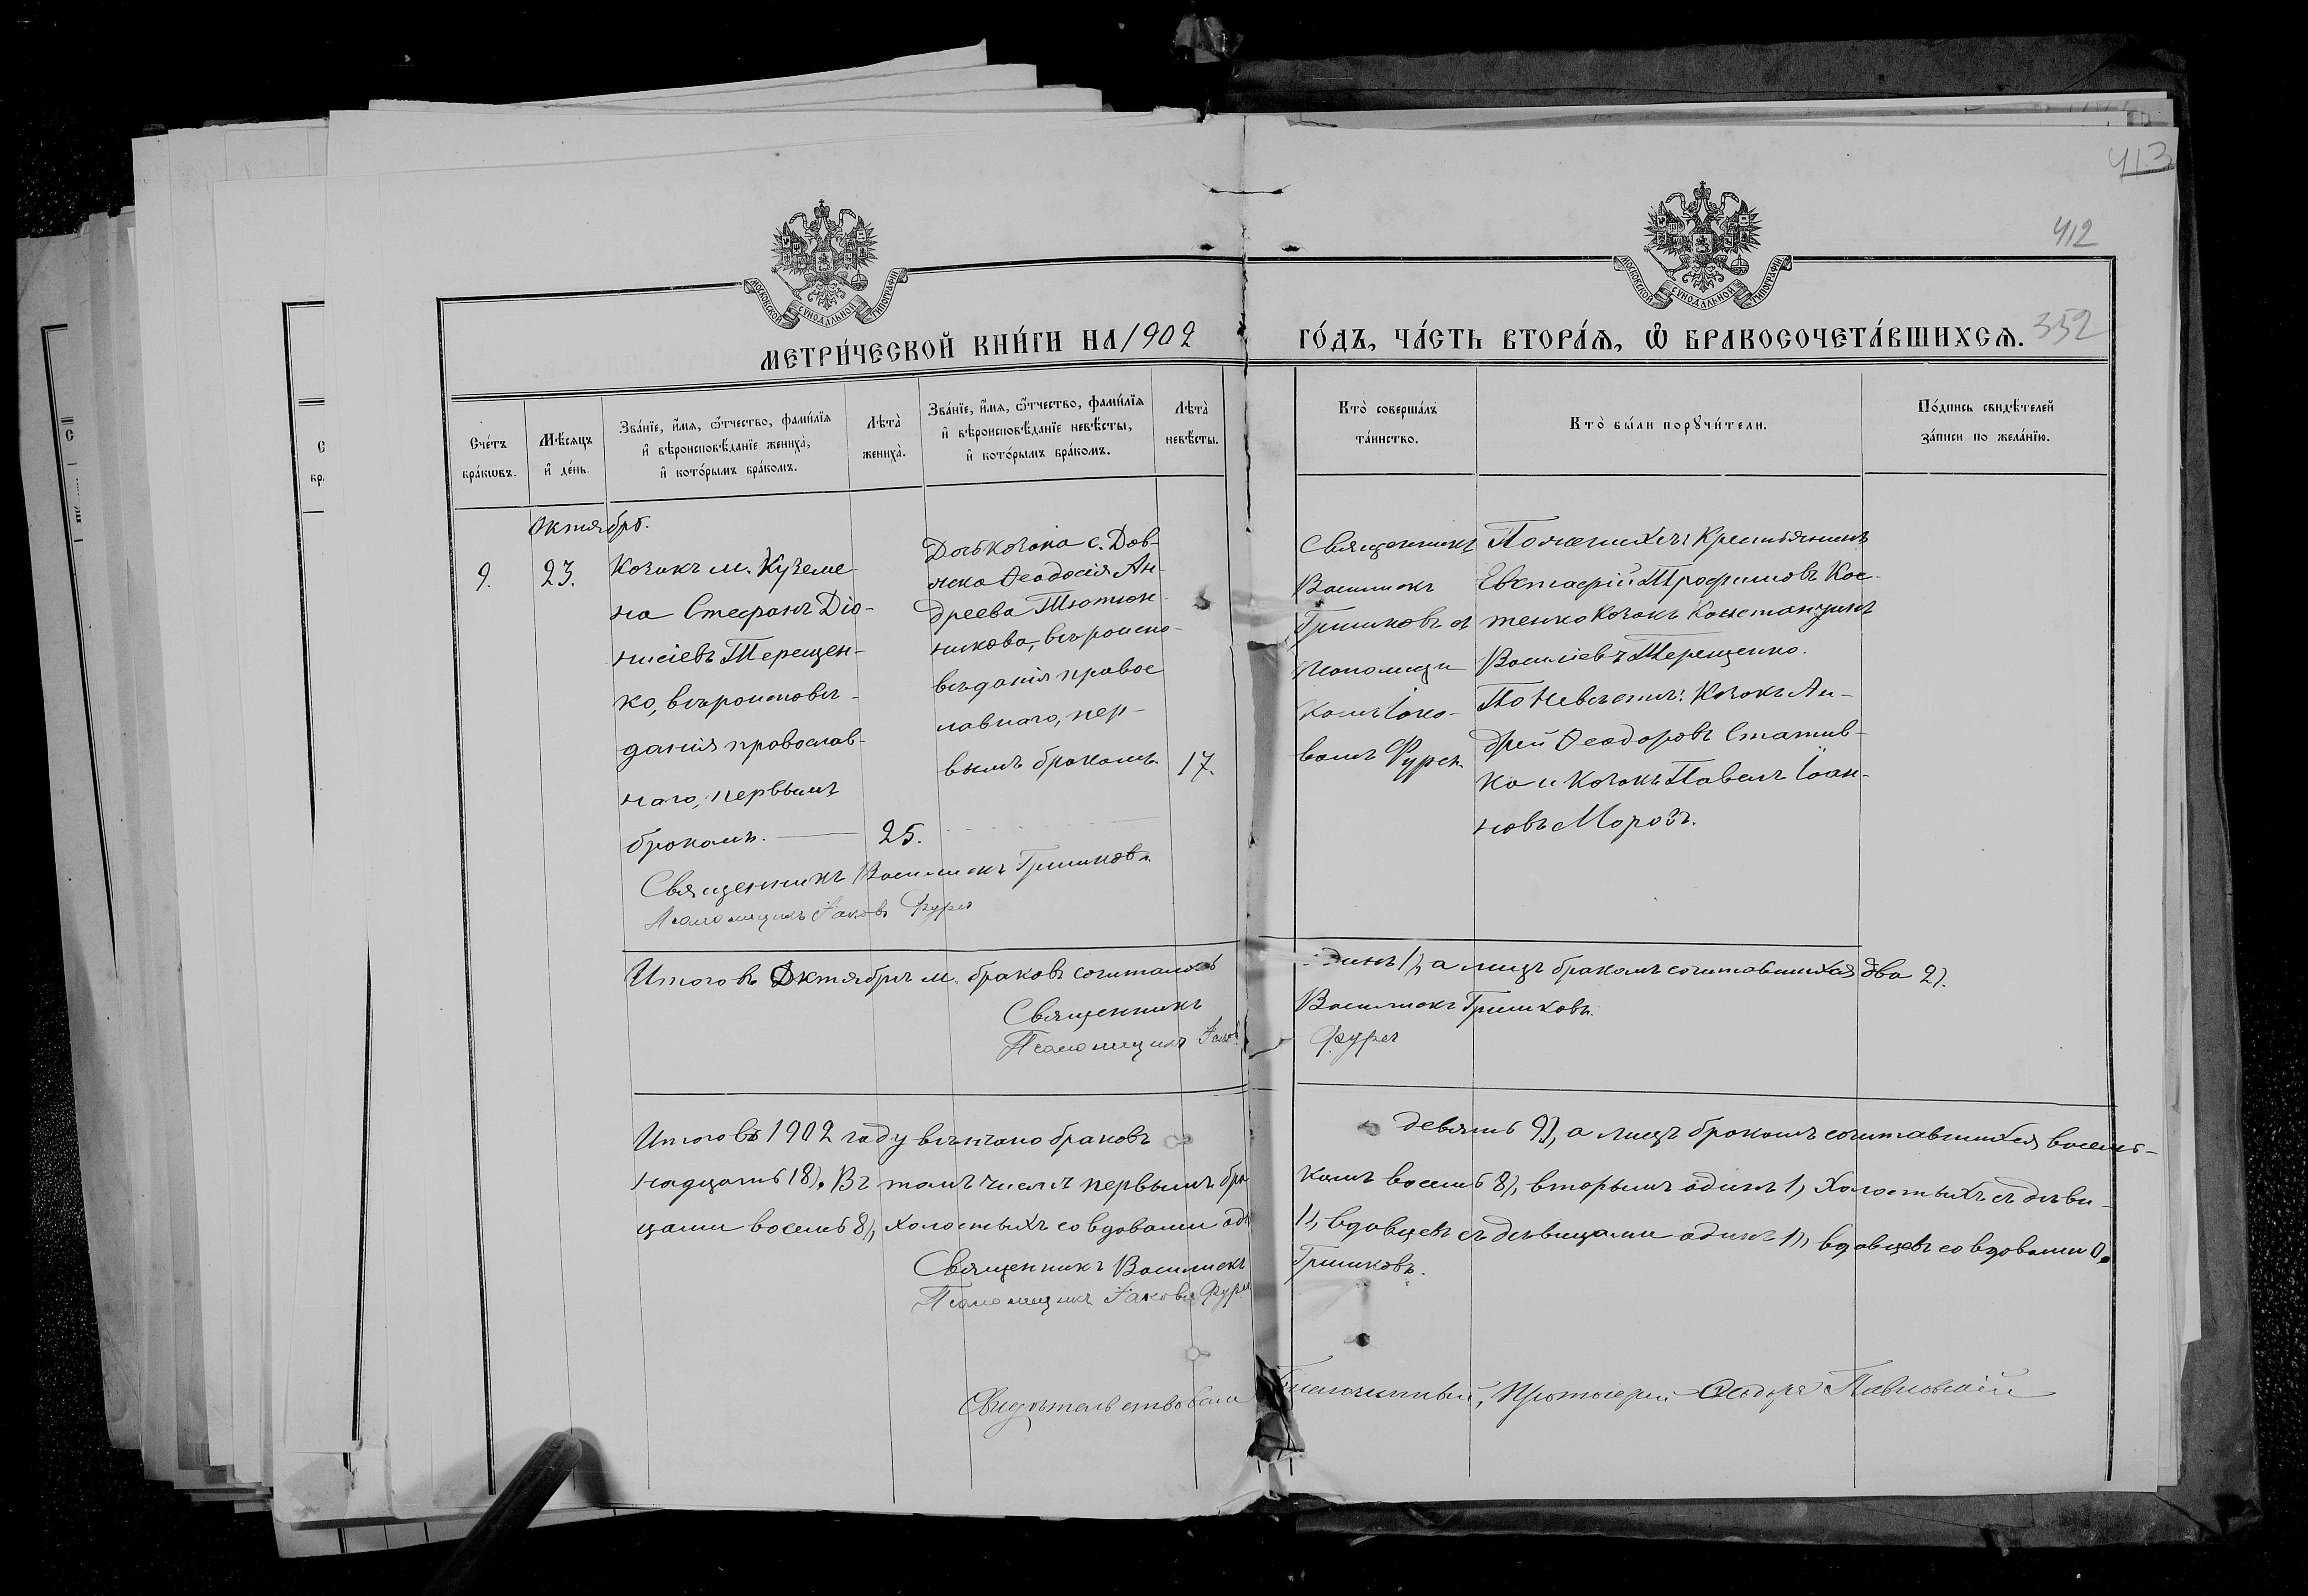 413
412
352
МОСКОВСКОЙ СѴНОДАЛЬНОЙ ТИПОГРАФІИ
МОСКОВСКОЙ СѴНОДАЛЬНОЙ ТИПОГРАФІИ
МЕТРИ́ЧЕСКОЙ КНИ́ГИ НА 1902
ГО́ДЪ, ЧА́СТЬ ВТОРА́Ѧ, Ѽ БРАКОСОЧЕТА́ВШИХСѦ.
Сче́тъ бра́кωвъ.
Мѣ́сяцъ и҆ де́нь.
Зва́нїе, и҆́мѧ, ѻ҆́тчество, фамѝлїѧ и҆ вѣроисповѣ́данїе жениха̀, и҆ кото́рымъ бра́комъ.
Лѣта̀ жениха̀.
Зва́нїе, и҆́мѧ, ѻ҆́тчество, фамѝлїѧ и҆ вѣроисповѣ́данїе невѣ́сты, и҆ кото́рымъ бра́комъ.
Лѣта̀ невѣ́сты.
Кто̀ соверша́лъ та́инство.
Кто̀ бы́ли порꙋчи́тели.
По́дпись свидѣ́телей за́писи по жела́нїю.
Октябрь.
9.
23.
Козакъ м. Куземе-
на Стефанъ Діо-
нисіевъ Терещен-
ко, вѣроисповѣ-
данія православ-
наго, первымъ
бракомъ.
25.
Дочь козака с. Дов-
жека Ѳеодосія Ан-
дреева Тютюн-
никова, вѣроиспо-
вѣданія правос
лавнаго, пер-
вымъ бракомъ.
17.
Священникъ
Василискъ
Гришковъ съ
псаломщи
комъ Іако-
вомъ Фурсъ.
По женихѣ: Крестьянинъ
Евстафій Трофимовъ Кос-
тенко Козакъ Константинъ
Василіевъ Терещенко.
По невѣстѣ: Козакъ Ан-
дрей Ѳеодоровъ Статив-
ка и Козакъ Павелъ Іоан-
новъ Морозъ.
Священникъ Василискъ Гришковъ.
Псаломщикъ Іаковъ Фурсъ
Итого въ Октябрѣ м. браковъ сочиталось
динъ 1), а лицъ бракомъ сочитавшихся два 2).
Священникъ
Василискъ Гришковъ.
Псаломщикъ Іаков
Фурсъ
Итого въ 1902 году вѣнчано браковъ
девять 9), а лицъ бракомъ сочитавшихся восем-
надцать 18). Въ томъ числѣ первымъ бра
комъ восемь 8), вторымъ одинъ 1), холостыхъ съ дѣви-
цами восемь 8), холостыхъ со вдовами оди
1), вдовцевъ съ дѣвицами одинъ 1), вдовцевъ со вдовами 0.
Священникъ Василискъ
Гришковъ.
Псаломщикъ Іаковъ Фурсъ
Свидѣтельствовалъ
Благочинный, Протоіерей Ѳеодоръ Павловскій